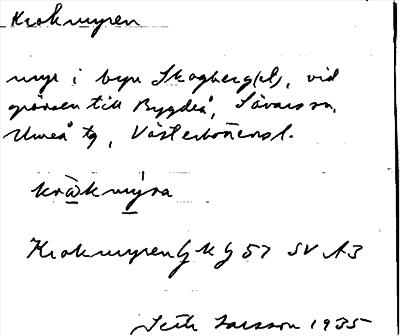 Krokmyren
myr i byn Skogberg(et), vid
gränsen till Bygdeå, Sävars sn,
Umeå tg, Västerbottensl.
kråkmýra
Krokmyren GK 57 SV A3
Seth Larsson 1935